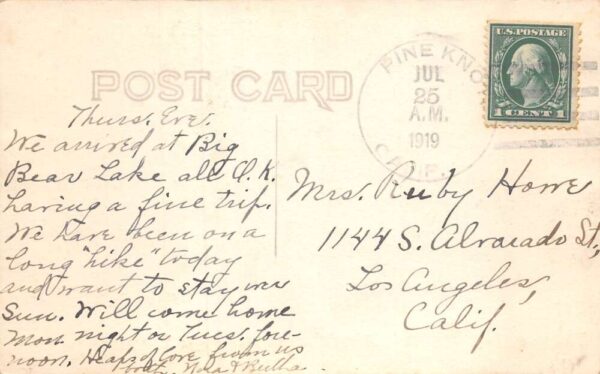 POST CARD
PINE KNOT
JUL
25
A.M.
1919
CALIF.
U.S. POSTAGE
1 CENT 1
Thurs. Eve.
We arrived at Big
Bear Lake all O.K.
having a fine trip.
We have been on a
long "hike" today
and want to stay over
Sun. Will come home
Mon. night or Tues. fore-
noon. Heaps of love from us
both. Nola & Bertha
Mrs. Ruby Howe
1144 S. Alvarado St.,
Los Angeles,
Calif.